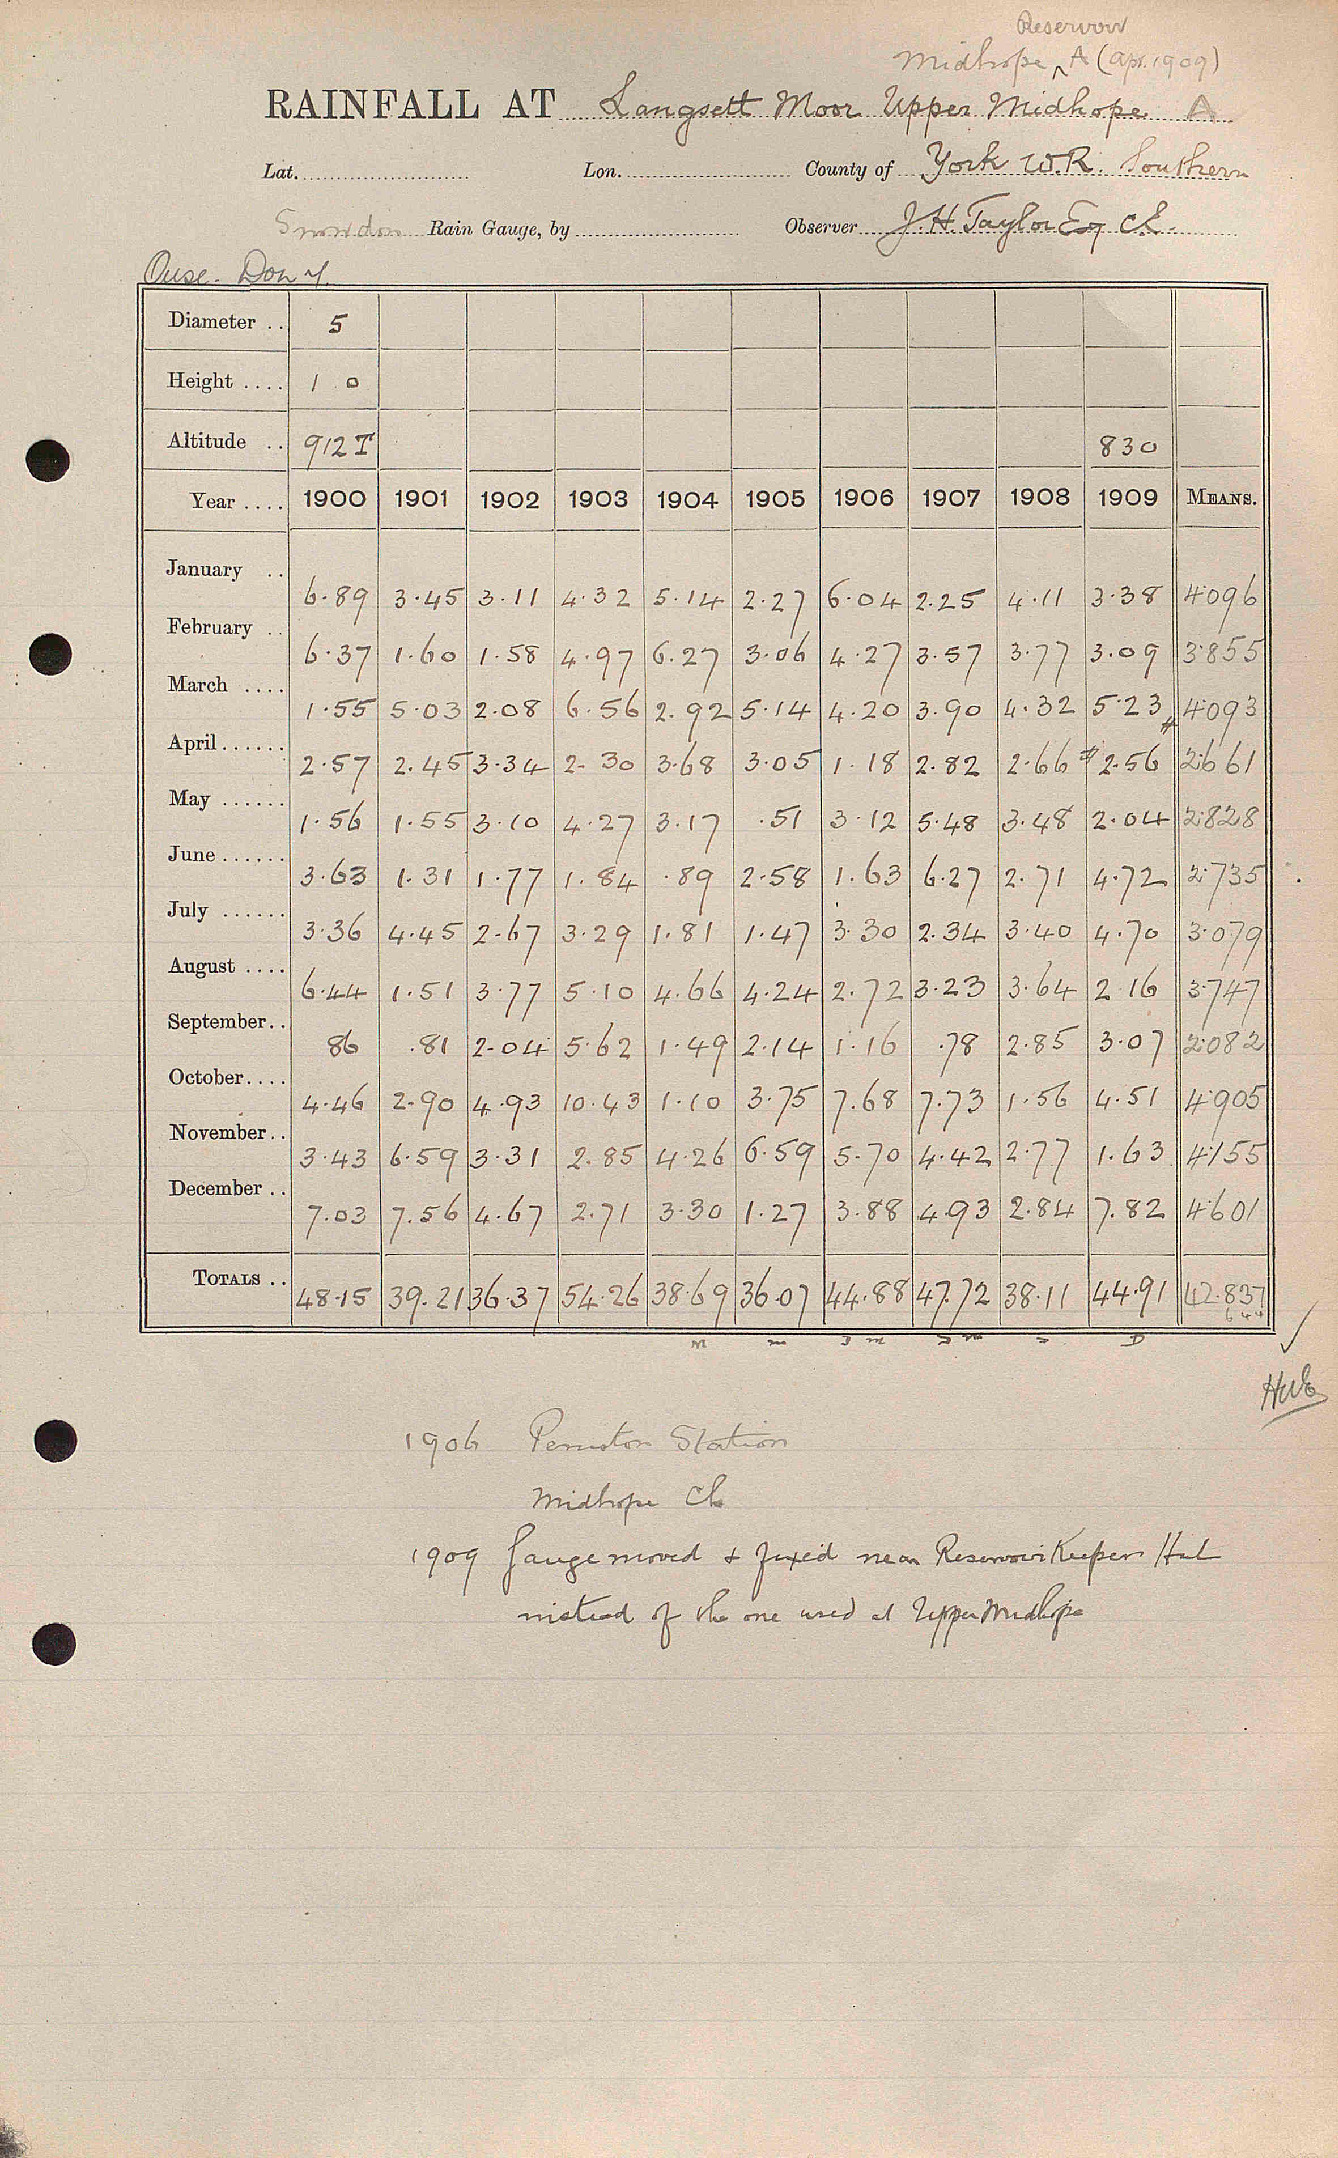 Reservoir
Midhope ^ A (Apr. 1909)
RAINFALL AT Langsett Moor Upper Midhope A
Lat. Lon. County of York W.R. Southern
Snowdon Rain Gauge, by Observer J. H. Taylor Esq C.E.
Ouse. Don 4.
Diameter .. 5
Height .... 1 0
Altitude .. 912 T 830
Year .... 1900 1901 1902 1903 1904 1905 1906 1907 1908 1909 MEANS.
January .. 6.89 3.45 3.11 4.32 5.14 2.27 6.04 2.25 4.11 3.38 4.096
February .. 6.37 1.60 1.58 4.97 6.27 3.06 4.27 3.57 3.77 3.09 3.855
March .... 1.55 5.03 2.08 6.56 2.92 5.14 4.20 3.90 4.32 5.23 4.093
April ...... 2.57 2.45 3.34 2.30 3.68 3.05 1.18 2.82 2.66 # 2.56 # 2.661
May ...... 1.56 1.55 3.10 4.27 3.17 .51 3.12 5.48 3.48 2.04 2.828
June ...... 3.63 1.31 1.77 1.84 .89 2.58 1.63 6.27 2.71 4.72 2.735
July ...... 3.36 4.45 2.67 3.29 1.81 1.47 3.30 2.34 3.40 4.70 3.079
August .... 6.44 1.51 3.77 5.10 4.66 4.24 2.72 3.23 3.64 2.16 3.747
September .. 86 .81 2.04 5.62 1.49 2.14 1.16 .78 2.85 3.07 2.082
October .... 4.46 2.90 4.93 10.43 1.10 3.75 7.68 7.73 1.56 4.51 4.905
November .. 3.43 6.59 3.31 2.85 4.26 6.59 5.70 4.42 2.77 1.63 4.155
December .. 7.03 7.56 4.67 2.71 3.30 1.27 3.88 4.93 2.84 7.82 4.601
TOTALS .. 48.15 39.21 36.37 54.26 38.69 36.07 44.88 47.72 38.11 44.91 42.837
1906 Peniston Station
Midhope Ch
1909 Gauge moved & fixed near Reservoir Keepers Hut
instead of the one used at Upper Midhope